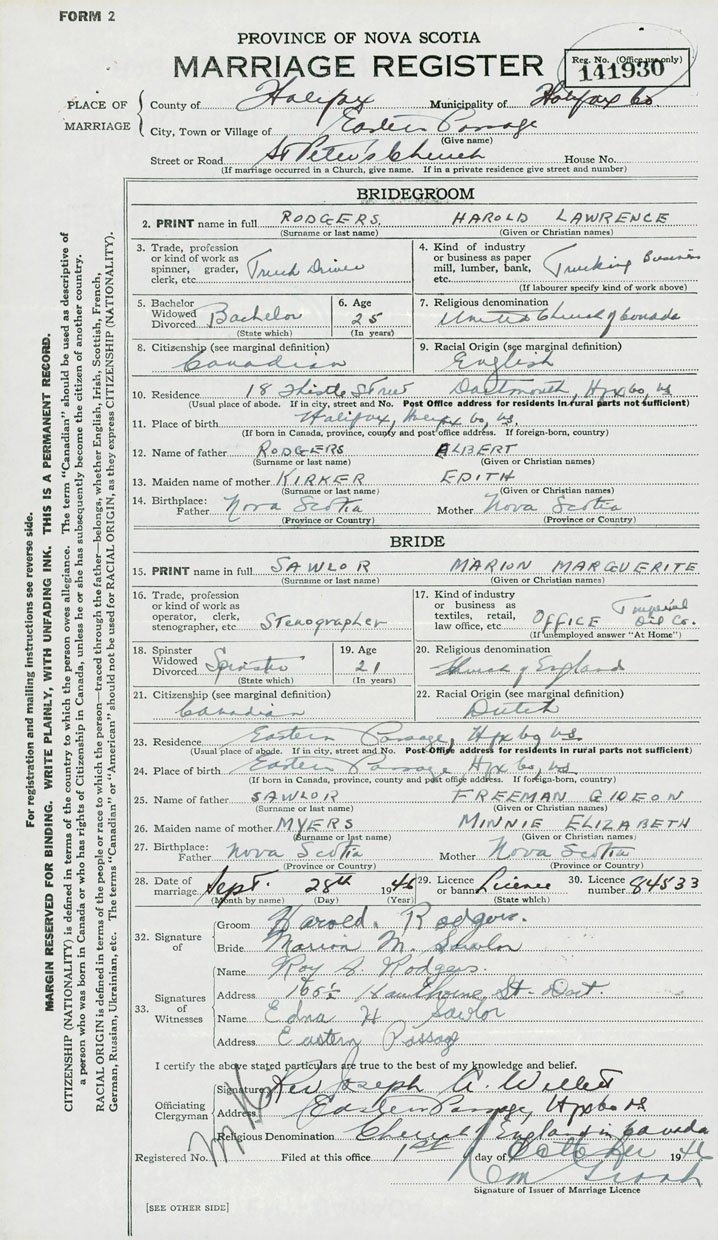 FORM 2
PROVINCE OF NOVA SCOTIA
MARRIAGE REGISTER
Reg. No. (Office use only)
141930
PLACE OF MARRIAGE
County of Halifax Municipality of Halifax Co.
City, Town or Village of Eastern Passage
(Give name)
Street or Road St Peter's Church House No.
(If marriage occurred in a Church, give name. If in a private residence give street and number)
BRIDEGROOM
2. PRINT name in full RODGERS HAROLD LAWRENCE
(Surname or last name) (Given or Christian names)
3. Trade, profession or kind of work as spinner, grader, clerk, etc. Truck Driver
4. Kind of industry or business as paper mill, lumber, bank, etc. Trucking Business
(If labourer specify kind of work above)
5. Bachelor Widowed Divorced Bachelor
(State which)
6. Age 25
(In years)
7. Religious denomination
United Church of Canada
8. Citizenship (see marginal definition)
Canadian
9. Racial Origin (see marginal definition)
English
10. Residence 18 Thistle Street Dartmouth, Hfx Co, NS
(Usual place of abode. If in city, street and No. Post Office address for residents in rural parts not sufficient)
11. Place of birth Halifax, Hfx Co, NS.
(If born in Canada, province, county and post office address. If foreign-born, country)
12. Name of father RODGERS ALBERT
(Surname or last name) (Given or Christian names)
13. Maiden name of mother KIRKER EDITH
(Surname or last name) (Given or Christian names)
14. Birthplace: Father Nova Scotia Mother Nova Scotia
(Province or Country) (Province or Country)
BRIDE
15. PRINT name in full SAWLOR MARION MARGUERITE
(Surname or last name) (Given or Christian names)
16. Trade, profession or kind of work as operator, clerk, stenographer, etc. Stenographer
17. Kind of industry or business as textiles, retail, law office, etc. OFFICE Imperial Oil Co.
(If unemployed answer "At Home")
18. Spinster Widowed Divorced Spinster
(State which)
19. Age 21
(In years)
20. Religious denomination
Church of England
21. Citizenship (see marginal definition)
Canadian
22. Racial Origin (see marginal definition)
Dutch
23. Residence Eastern Passage, Hfx Co NS.
(Usual place of abode. If in city, street and No. Post Office address for residents in rural parts not sufficient)
24. Place of birth Eastern Passage, Hfx Co, NS
(If born in Canada, province, county and post office address. If foreign-born, country)
25. Name of father SAWLOR FREEMAN GIDEON
(Surname or last name) (Given or Christian names)
26. Maiden name of mother MYERS MINNIE ELIZABETH
(Surname or last name) (Given or Christian names)
27. Birthplace: Father Nova Scotia Mother Nova Scotia
(Province or Country) (Province or Country)
28. Date of marriage Sept. 28th 1946 29. Licence or banns Licence 30. Licence number 84533
(Month by name) (Day) (Year) (State which)
32. Signature of
Groom Harold. Rodgers.
Bride Marion M. Sawlor
33. Signatures of Witnesses
Name Roy Rodgers.
Address 165½ Hawthorne St - Dart.
Name Edna H Sawlor
Address Eastern Passage
I certify the above stated particulars are true to the best of my knowledge and belief.
Officiating Clergyman
Signature Rev Joseph A. Willett
Address Eastern Passage, Hfx Co NS
Religious Denomination Church of England in Canada
Registered No. Filed at this office 1st day of October 1946
Signature of Issuer of Marriage Licence
[SEE OTHER SIDE]
For registration and mailing instructions see reverse side.
MARGIN RESERVED FOR BINDING. WRITE PLAINLY, WITH UNFADING INK. THIS IS A PERMANENT RECORD.
CITIZENSHIP (NATIONALITY) is defined in terms of the country to which the person owes allegiance. The term "Canadian" should be used as descriptive of
a person who was born in Canada or who has rights of Citizenship in Canada, unless he or she has subsequently become the citizen of another country.
RACIAL ORIGIN is defined in terms of the people or race to which the person—traced through the father—belongs, whether English, Irish, Scottish, French,
German, Russian, Ukrainian, etc. The terms "Canadian" or "American" should not be used for RACIAL ORIGIN, as they express CITIZENSHIP (NATIONALITY).